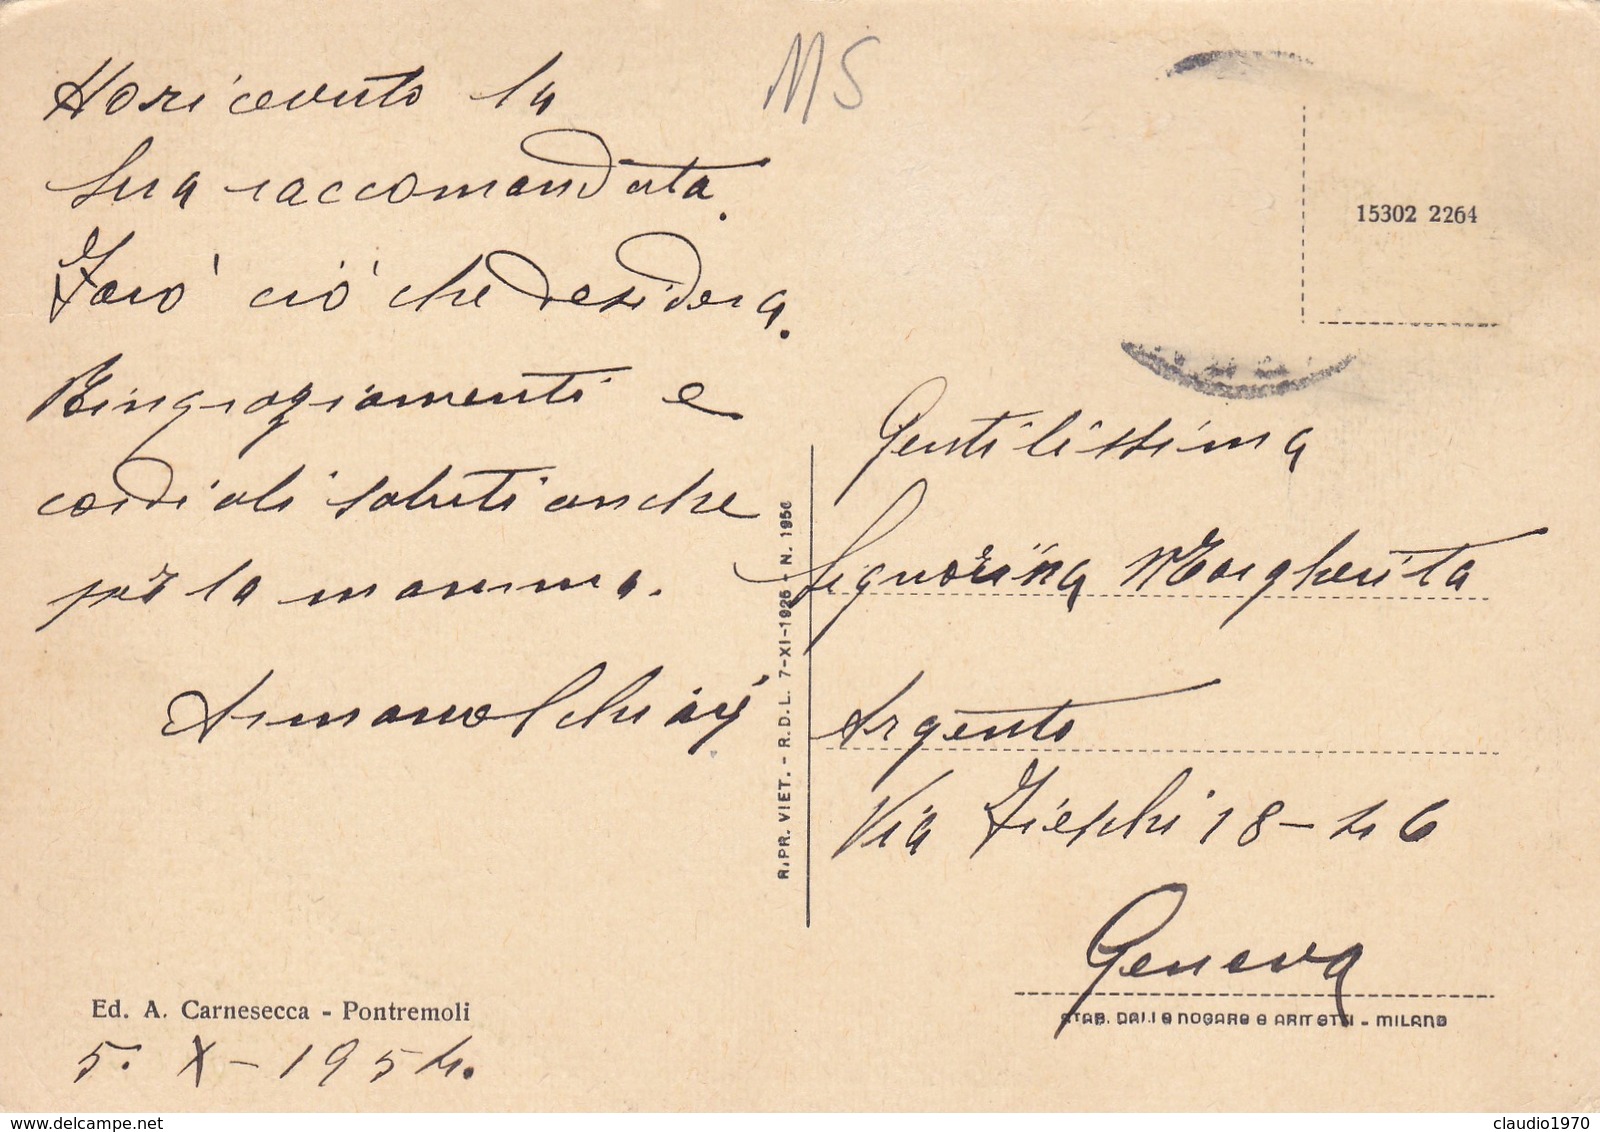 Ho ricevuto la
Sua raccomandata.
Farò ciò che desidera.
Ringraziamenti e
cordiali saluti anche
per la mamma.
5. X - 1954.
Ed. A. Carnesecca - Pontremoli
MS
R. PR. VIET. - R. D. L. 7-XI-1925 N. 1956
15302 2264
Gentilissima
Signorina Margherita
Argento
Via Fieschi 18 - 46
Genova
STAB. DALLE NOGARE E ARMETTI - MILANO
claudio1970